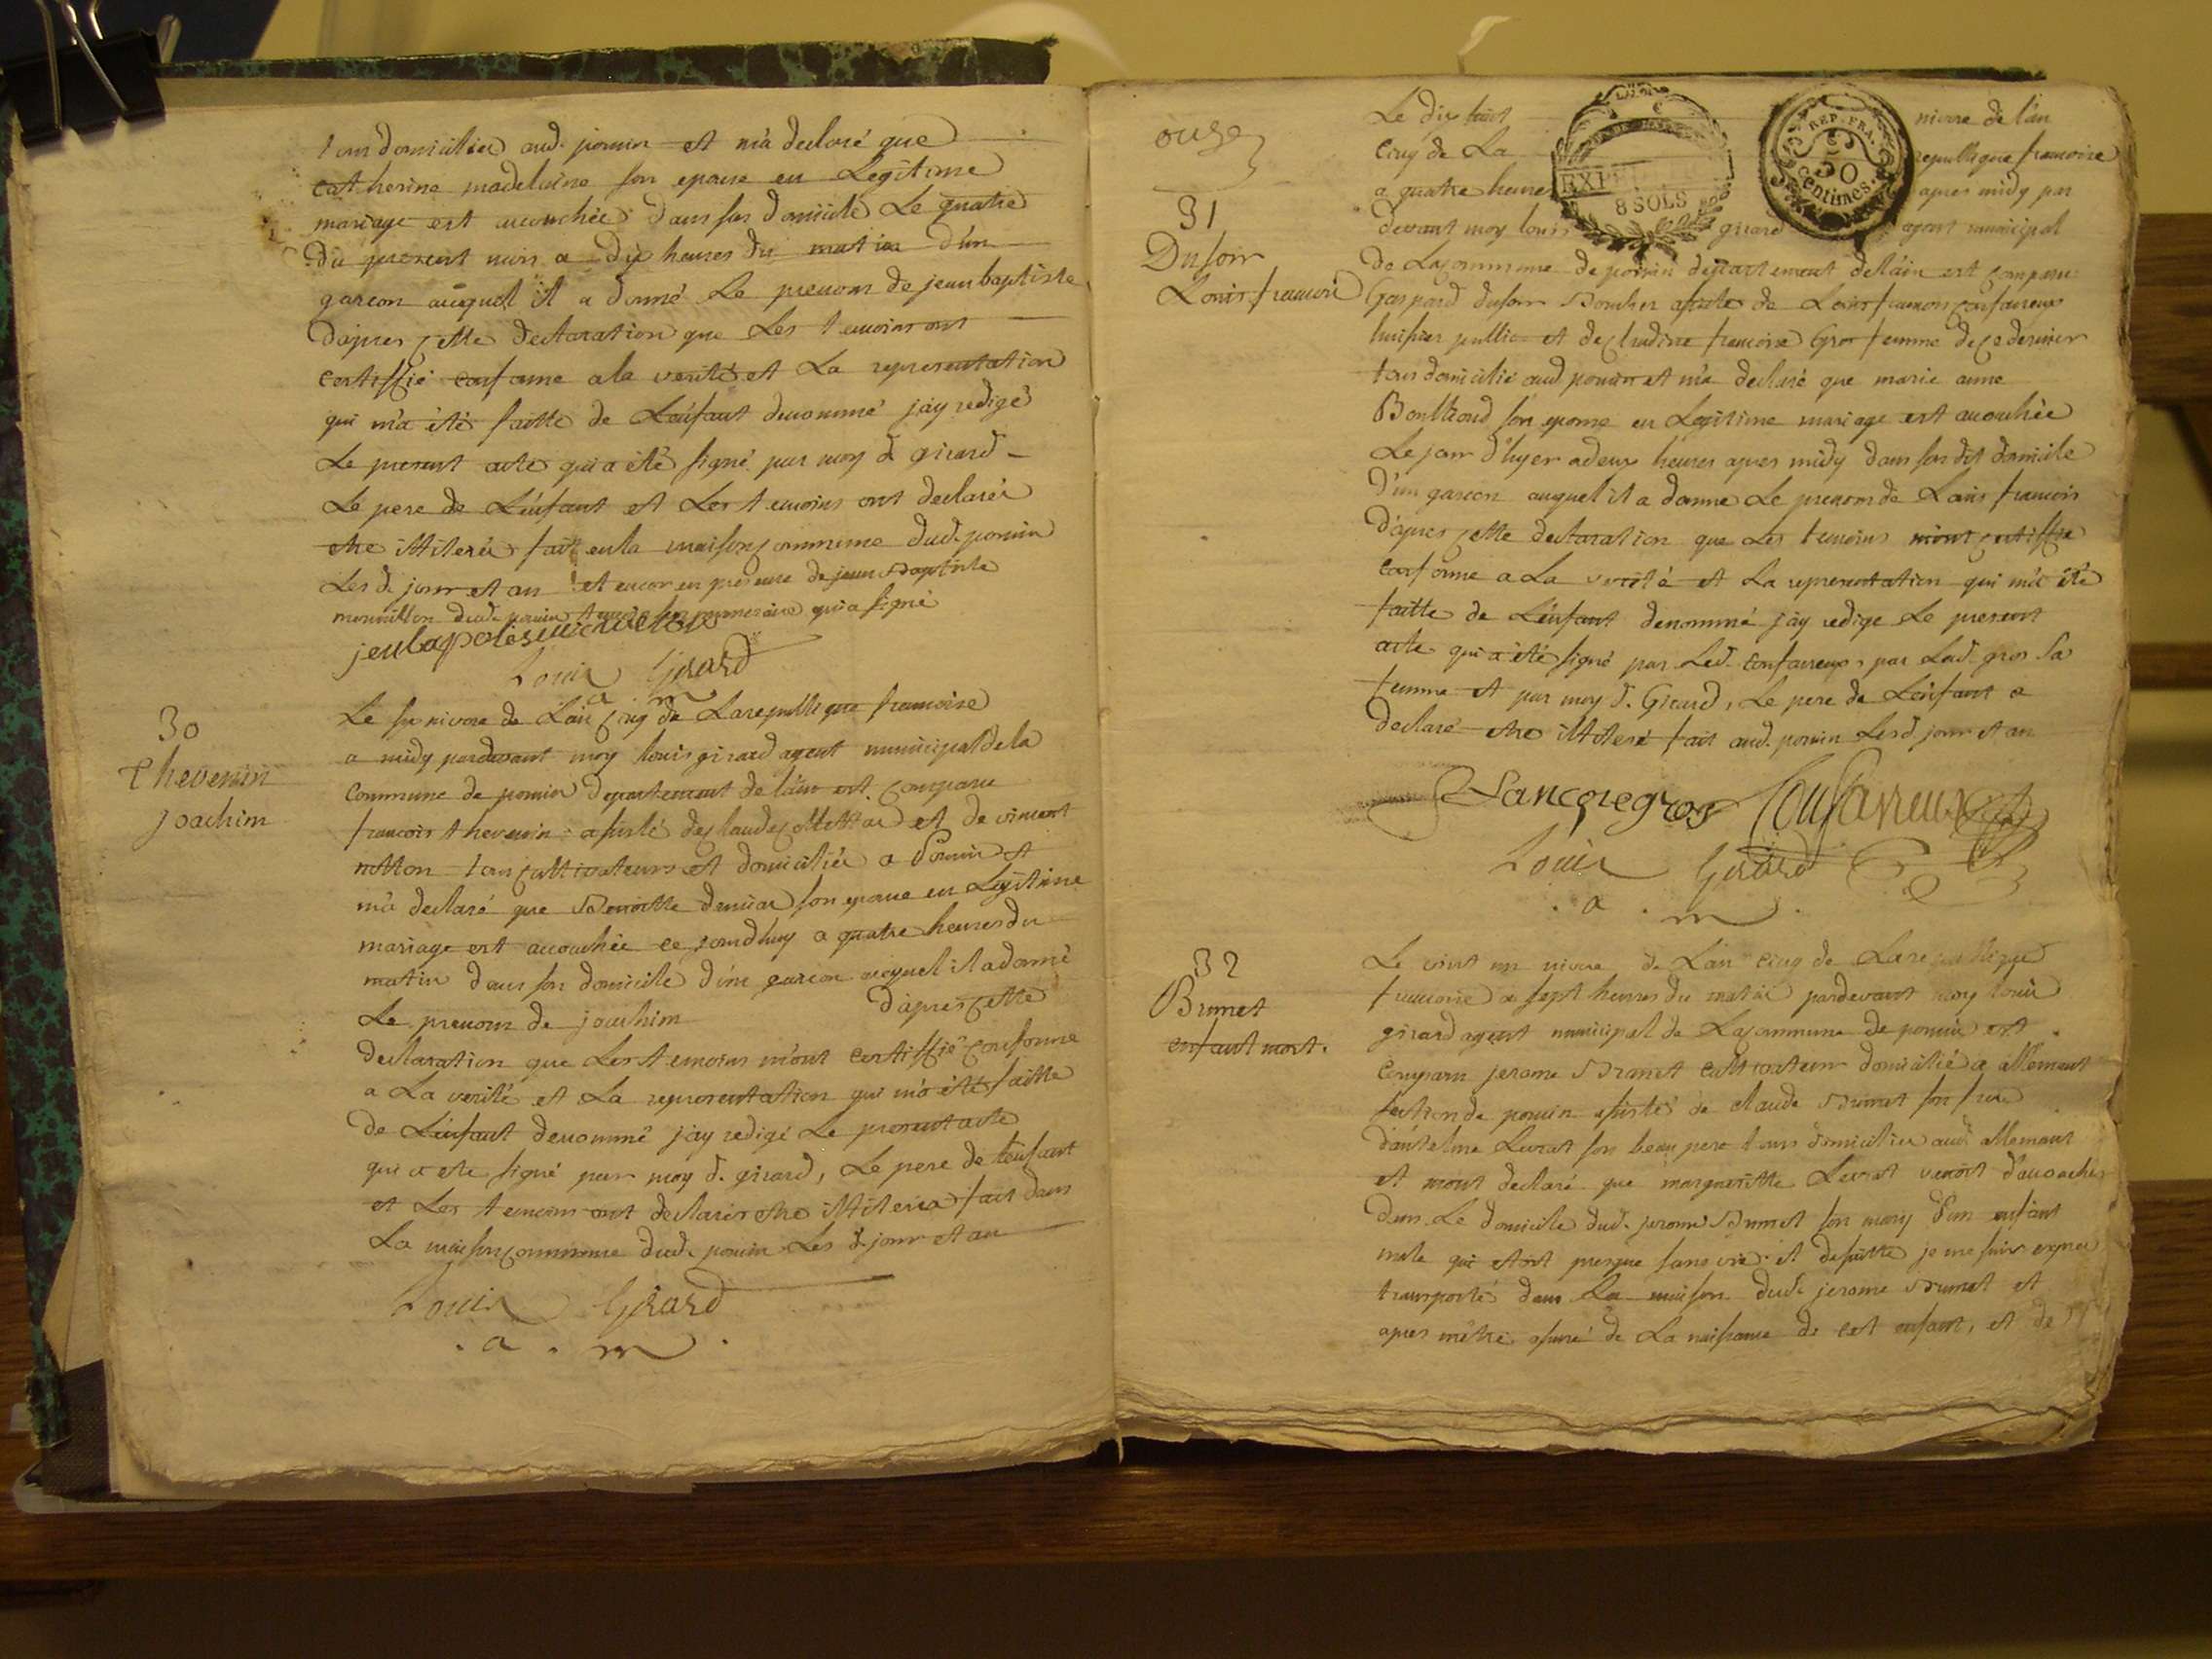 tous domiciliés aud. poncin et m'a declaré que
catherine madeleine son epouse en Legitime
mariage est accouchée dans son domicile Le quatre
du present mois a dix heures du matin d'un
garcon auquel il a donné Le prenom de jean baptiste
d'apres cette declaration que Les temoins ont
certiffié conforme a la verité et La representation
qui m'a été faitte de L'enfant denommé j'ay redigé
Le present acte qui a été signé par moy d. girard
Le pere de L'enfant et Les temoins ont declarés
etre illiterés fait en la maison commune dud. poncin
Les d. jour et an et encor en presence de jean Baptiste
dud. poncin qui a signé
Louis Girard
a m
30
Thevenin
joachim
Le six nivose de L'an cinq de La republique francoise
a midy pardevant moy louis girard agent municipal de la
commune de poncin departement de l'ain est comparu
francois thevenin assisté de claude et de vincent
notton tous cultivateurs et domiciliés a Poncin et
m'a declaré que Benoitte son epouse en Legitime
mariage est accouchée ce jourdhuy a quatre heures du
matin dans son domicile d'un garcon auquel il a donné
Le prenom de joachim d'apres cette
declaration que Les temoins m'ont certiffié conforme
a La verité et La representation qui m'a été faitte
de L'enfant denommé j'ay redigé Le present acte
qui a ete signé par moy d. girard, Le pere de l'enfant
et Les temoins ont declarés etre illiterés fait dans
La maison commune dud. poncin Les d. jour et an
Louis Girard
. a . m .
onze
31
Dusoir
Louis francois
Le dix huit nivose de l'an
cinq de La republique francoise
a quatre heures apres midy par
devant moy louis girard agent municipal
EXPE
8 SOLS
REP. FRA.
50
Centimes.
de La commune de poncin departement de l'ain est comparu
Gaspard dusoir Boucher assisté de Louis francois confavreux
huissier public et de claudine francoise Gros femme de ce dernier
tous domicilié aud poncin et m'a declaré que marie anne
son epouse en Legitime mariage est accouchée
Le jour d'hyer a deux heures apres midy dans son dit domicile
d'un garcon auquel il a donne Le prenom de Louis francois
d'apres cette declaration que Les temoins m'ont certiffié
conforme a La verité et La representation qui m'a été
faitte de L'enfant denommé j'ay redige Le present
acte qui a été signé par Led. confavreux, par Lad. gros sa
femme et par moy d. Girard, Le pere de L'enfant a
declaré etre illiteré fait aud. poncin Lesd. jour et an
gros Confavreux
Louis Girard
. a . m .
32
Brunet
enfant mort.
Le vint un nivose de L'an cinq de La republique
francoise a sept heures du matin pardevant moy louis
girard agent municipal de La commune de poncin est
comparu jerome Brunet cultivateur domicilié a allement
section de poncin assisté de claude Brunet son frere
d'antelme Levrat son beau pere tous domiciliés aud allement
et m'ont declaré que margueritte Levrat venoit d'accoucher
dans Le domicile dud. jerome Brunet son mary d'un enfant
male qui etoit presque sans vie et desuitte je me suis expres
transporté dans La maison dud. jerome Brunet et
apres m'etre assuré de La naissance de cet enfant, et de